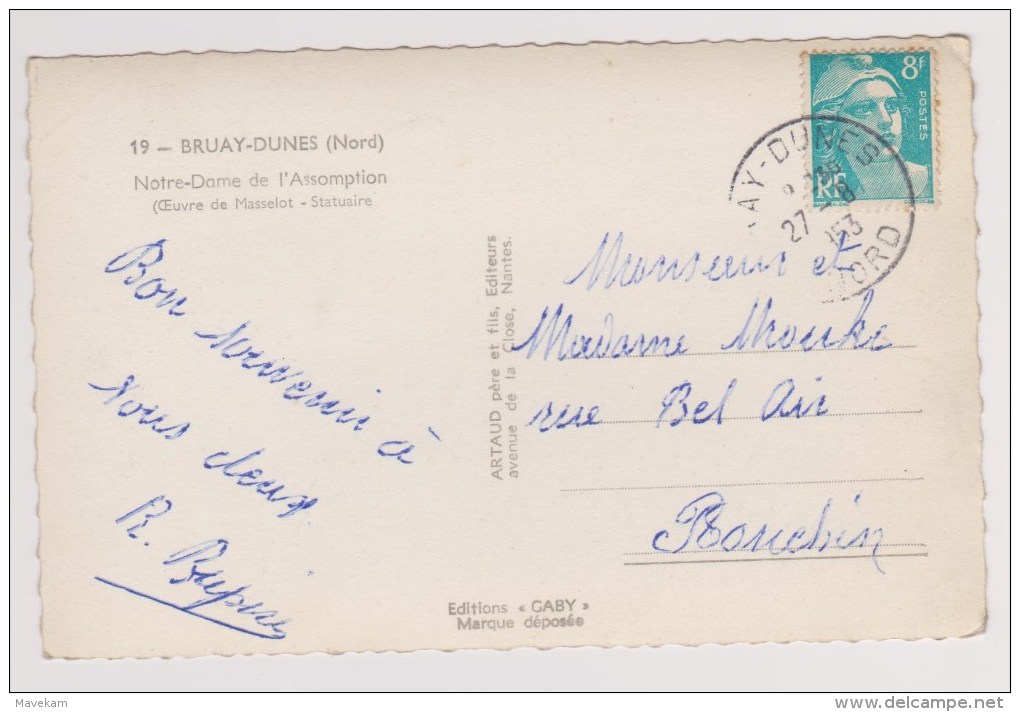 19 — BRUAY-DUNES (Nord)
Notre-Dame de l'Assomption
(Œuvre de Masselot - Statuaire
Bon souvenir à
vous deux
R.
ARTAUD père et fils, Editeurs
avenue de la Close, Nantes.
Editions « GABY »
Marque déposée
8F
POSTES
RF
AY-DUNES
27 - 8
NORD
Monsieur et
Madame
rue Bel Air
Ronchin
Mavekam
delcampe.net